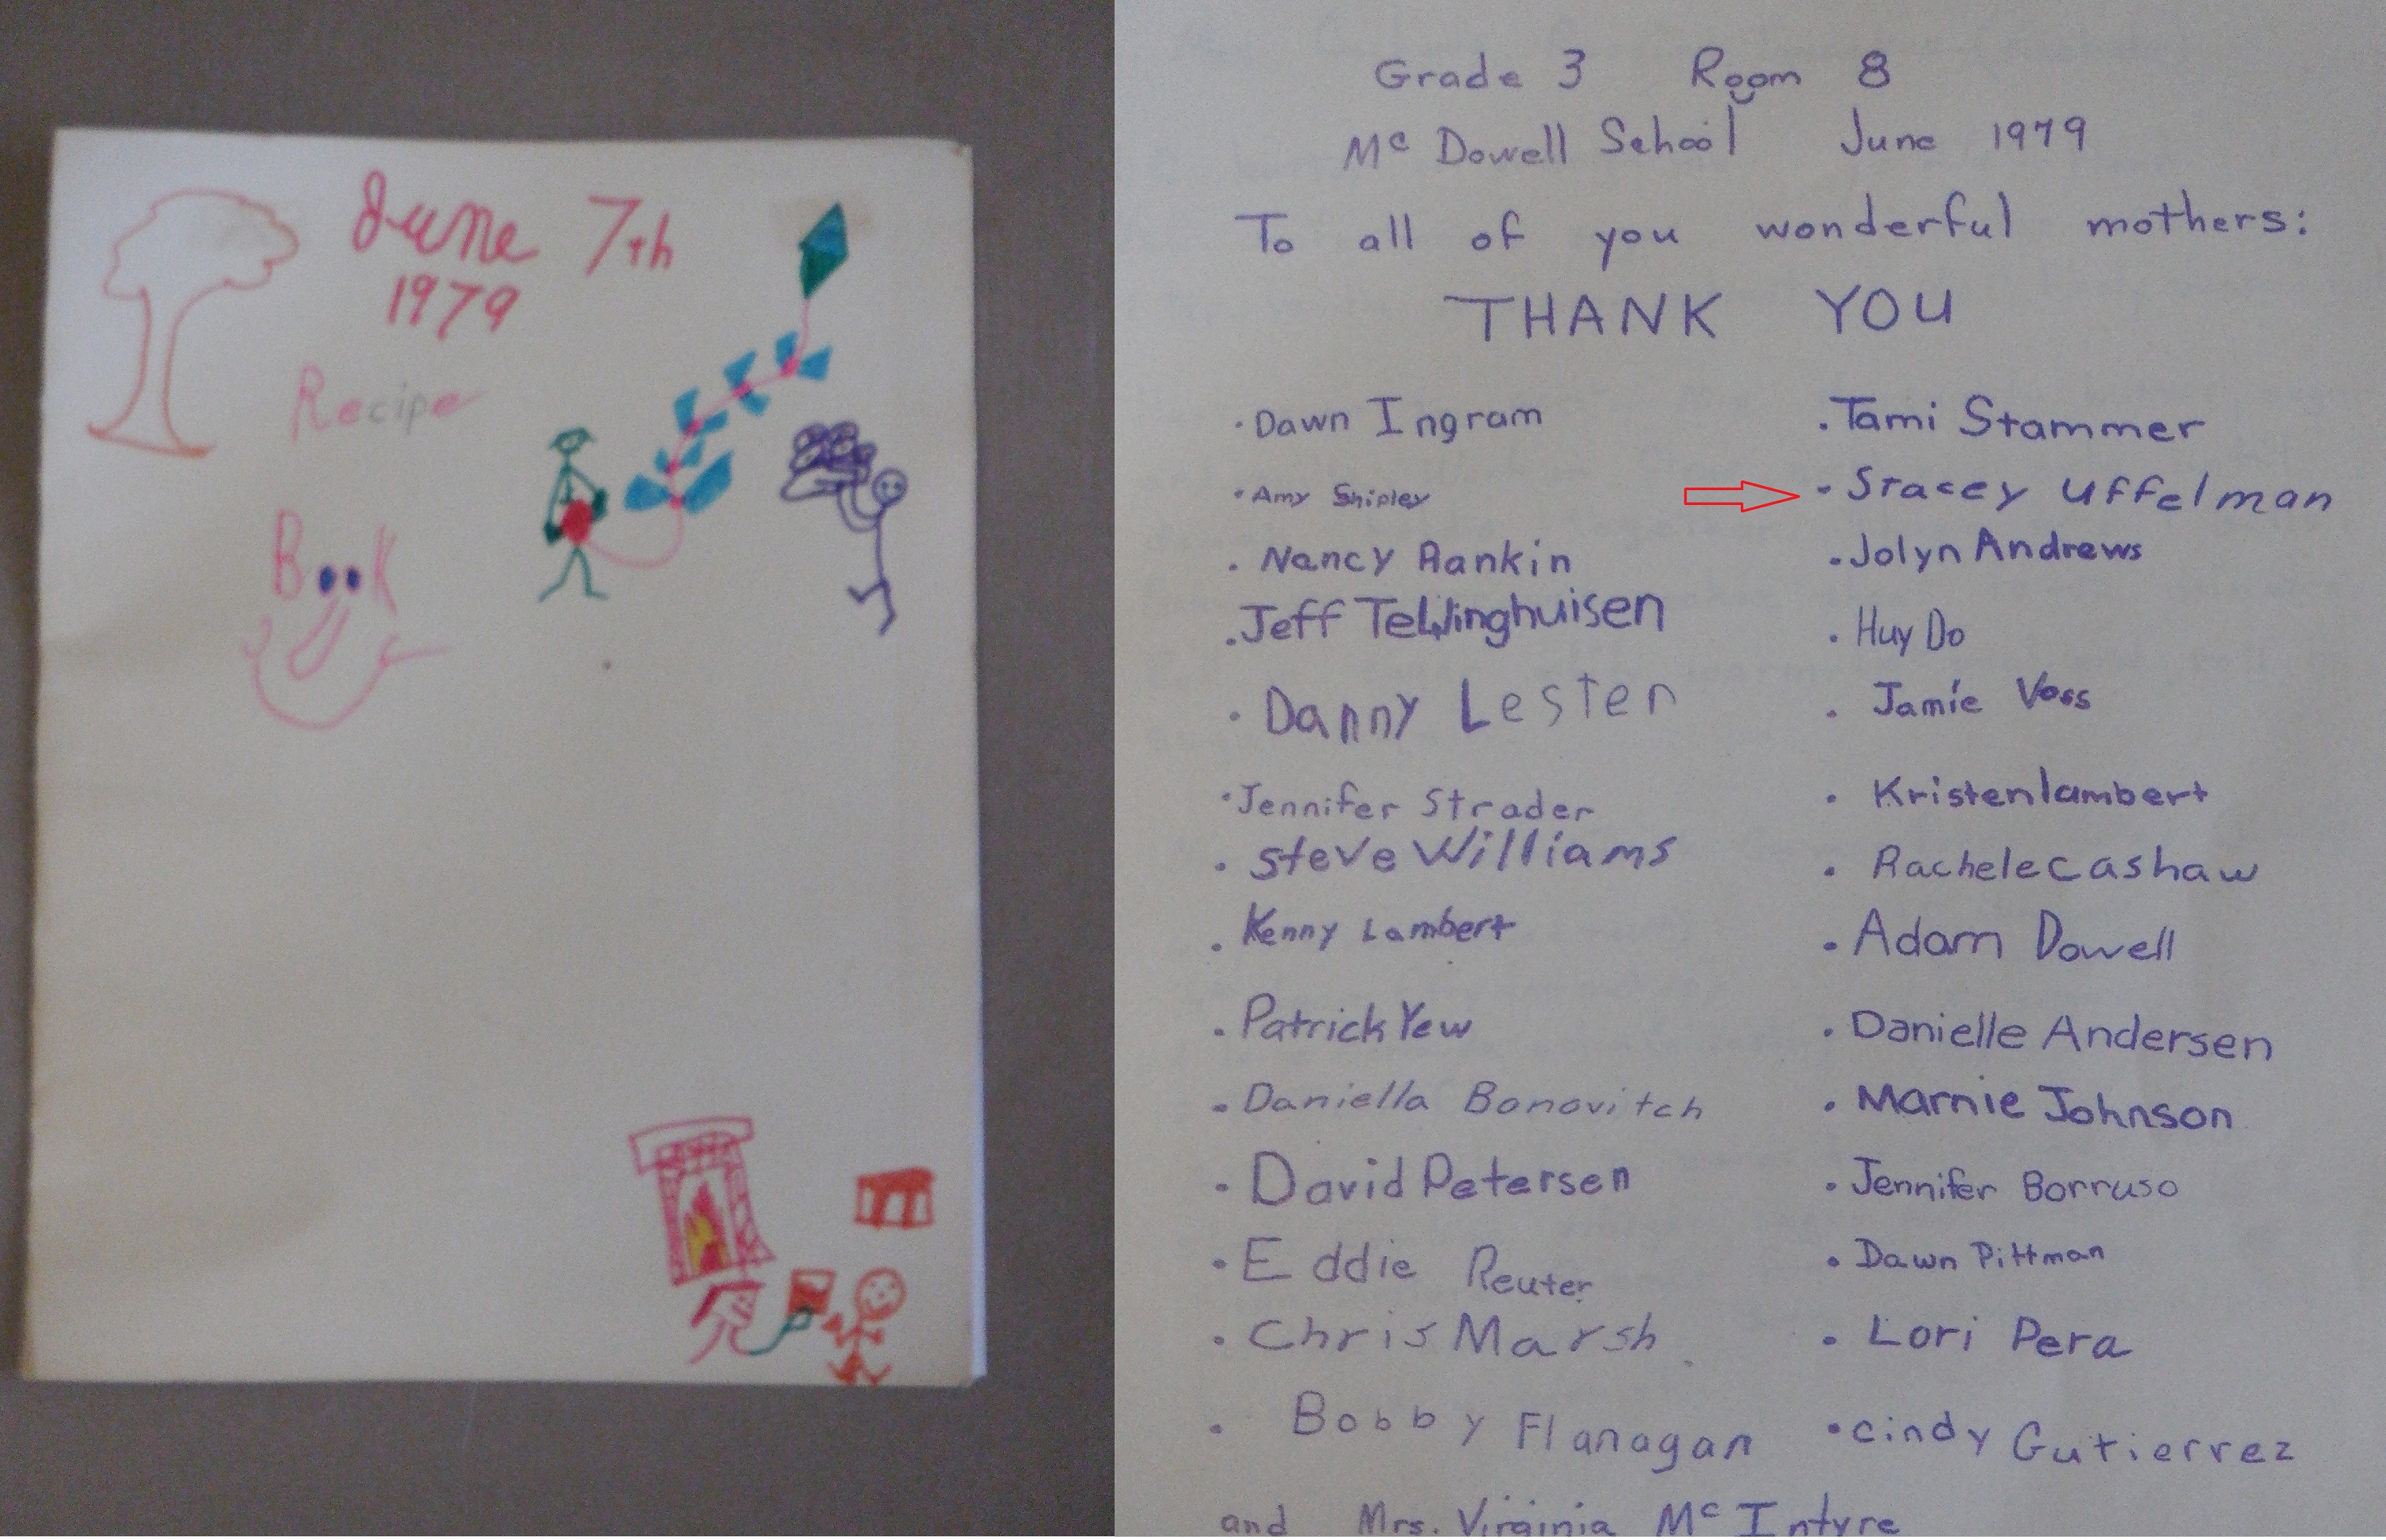 June 7th
1979
Recipe
Book
Grade 3 Room 8
Mc Dowell School June 1979
To all of you wonderful mothers:
THANK YOU
· Dawn Ingram
· Amy Shipley
· Nancy Rankin
· Jeff Tellinghuisen
· Danny Lester
· Jennifer Strader
· Steve Williams
· Kenny Lambert
· Patrick Yew
· Daniella Bonovitch
· David Petersen
· Eddie Reuter
· Chris Marsh
· Bobby Flanagan
· Tami Stammer
· Stacey Uffelman
· Jolyn Andrews
· Huy Do
· Jamie Voss
· Kristen lambert
· Rachele cashaw
· Adam Dowell
· Danielle Andersen
· Marnie Johnson
· Jennifer Borruso
· Dawn Pittman
· Lori Pera
· cindy Gutierrez
and Mrs. Virginia Mc Intyre